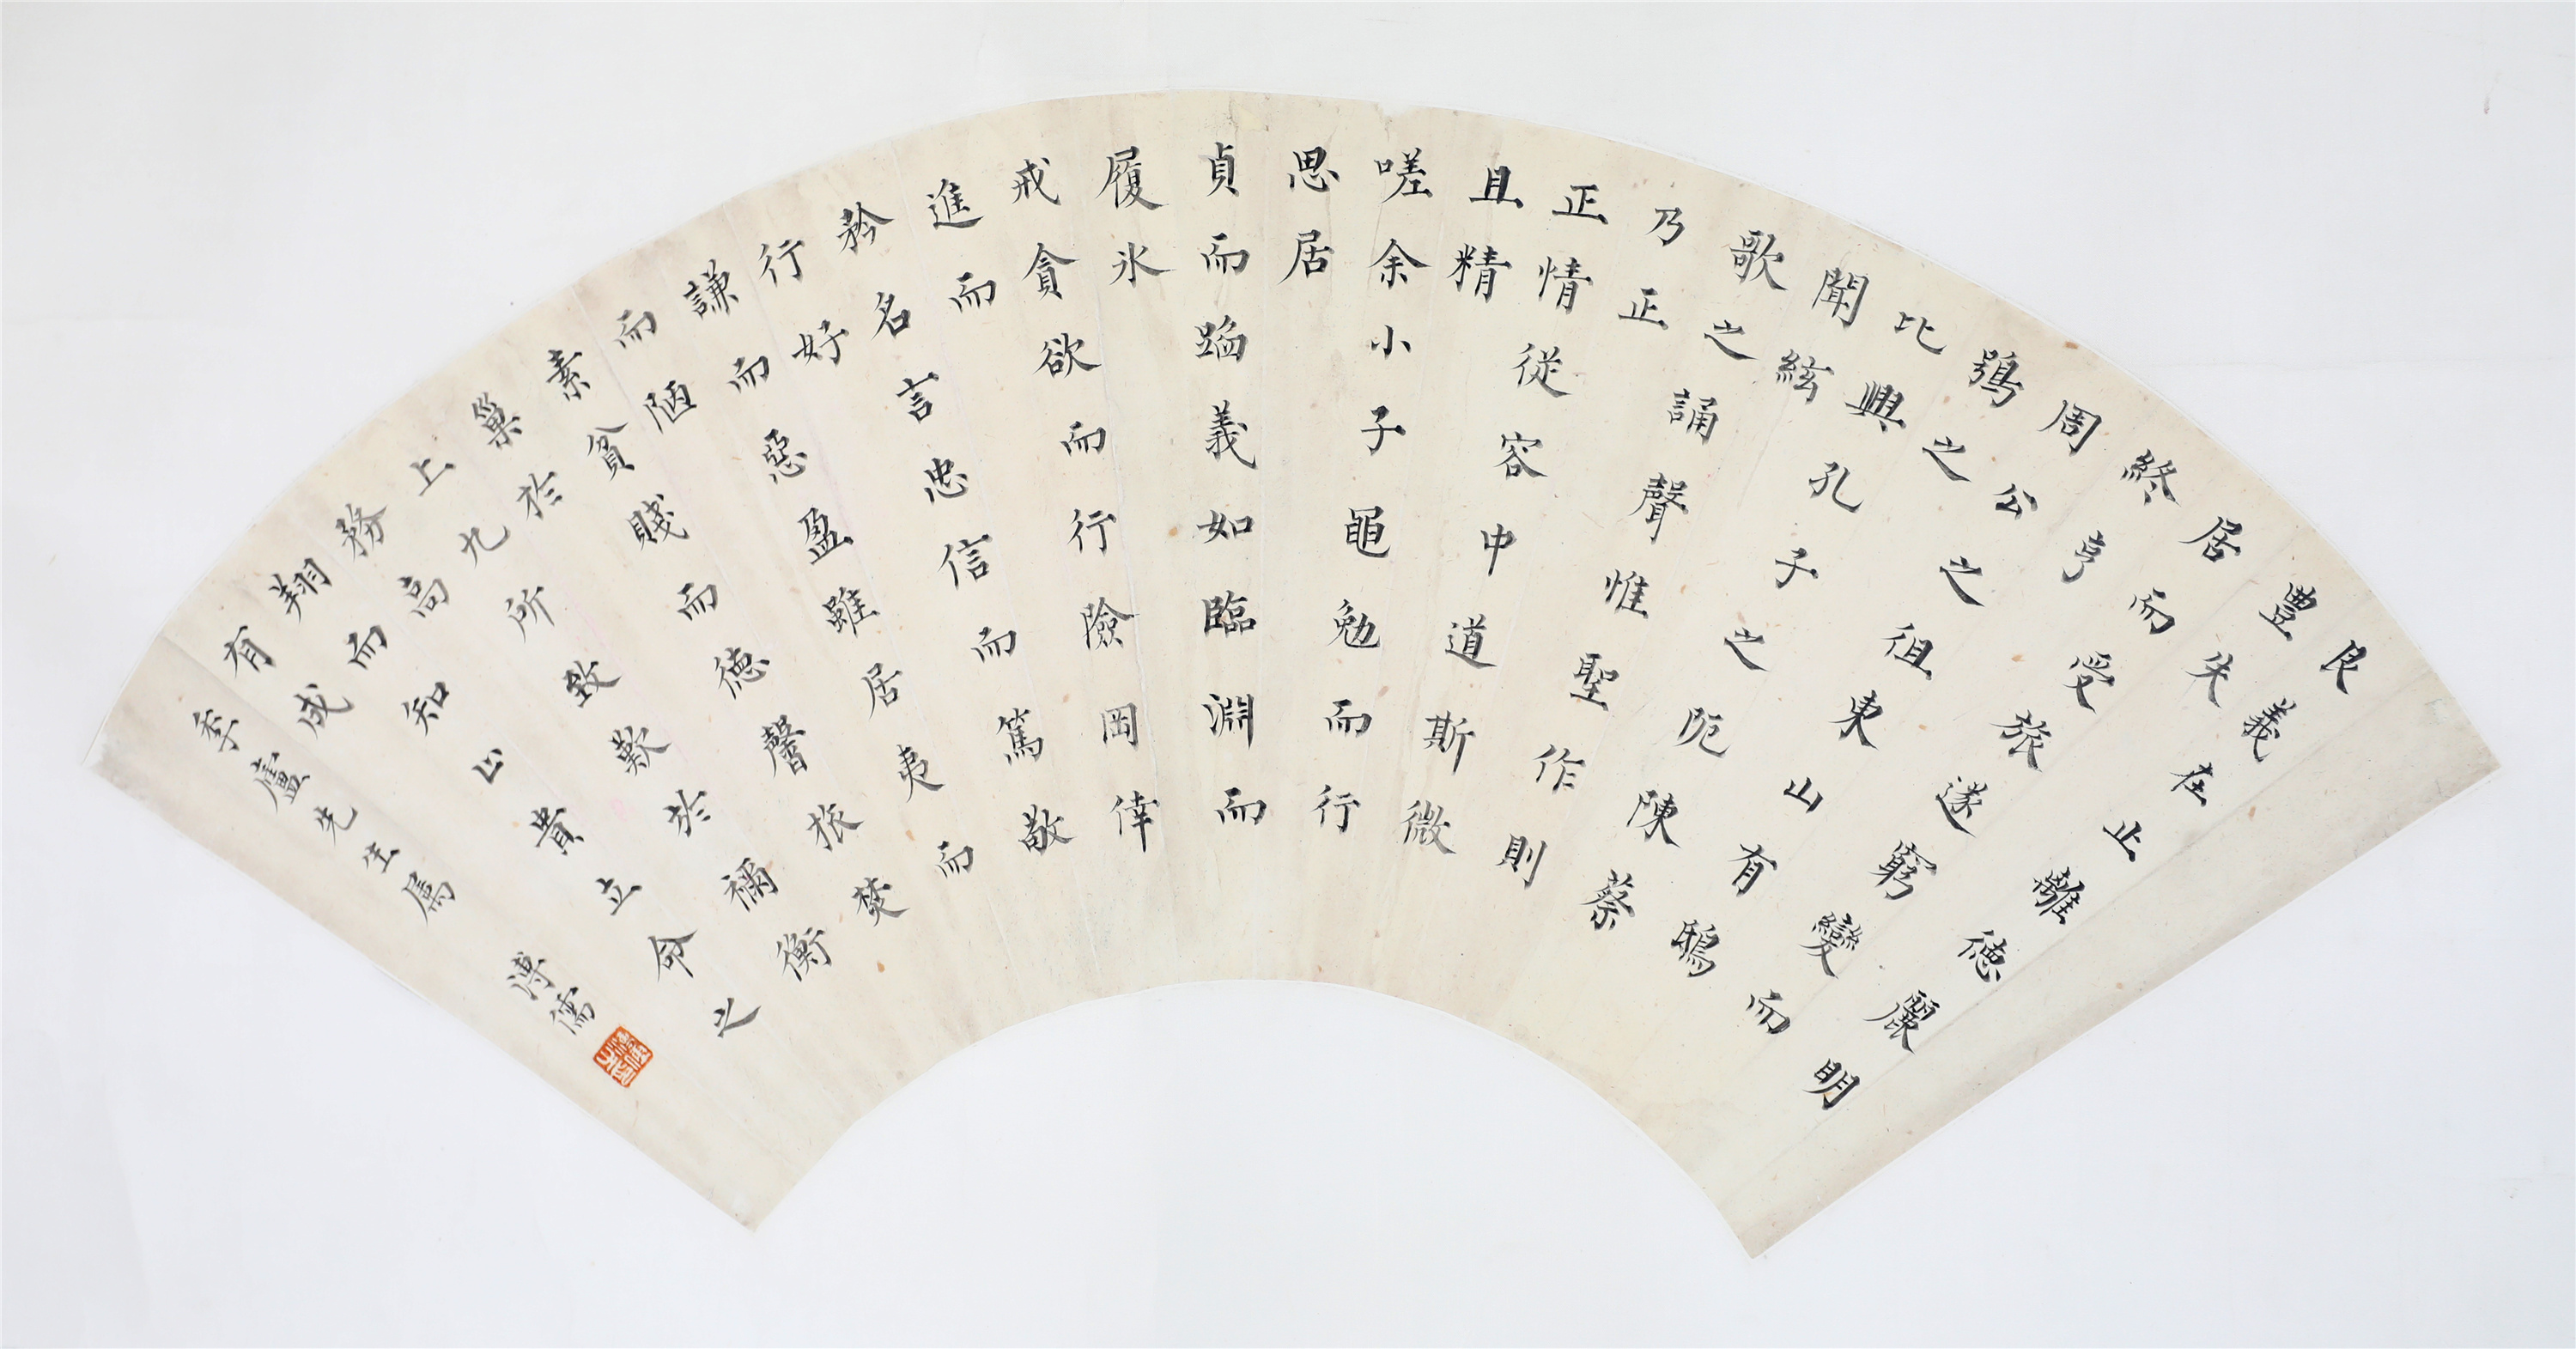 艮義在止離德麗明
豐失
居而受旅遂窮變而
終亨
周公之徂東山有鴟
鴞之
比興孔子之阨陳蔡
聞絃
歌之誦聲惟聖作則
乃正
正情從容中道斯微
且精
嗟余小子黽勉而行
思居
貞而蹈義如臨淵而
履冰
戒貪欲而行險岡倖
進而
矜名言忠信而篤敬
行好
謙而惡盈雖居夷而
而陋
素貧賤而德馨旅焚
巢於
上九所致歎於禰衡
務高
翔而知止貴立命之
有成
季廬先生屬 溥儒